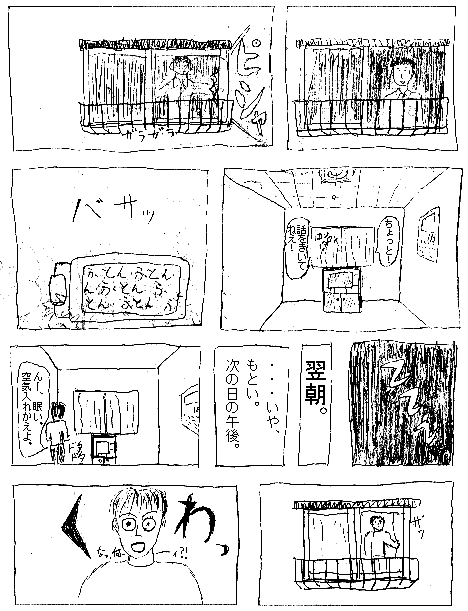 ピシャ
ガラガラ
ちょっとー
話を聞いて
ねえー
バサッ
ふとん ふとん
ん ふとん ふ
とん ふとん ふ
ZZZ
翌朝。
・・・いや、
もとい。
次の日の午後。
んー、眠い、
空気入れかえよ。
ザッ
わっ
なっ、何
ーィ?!